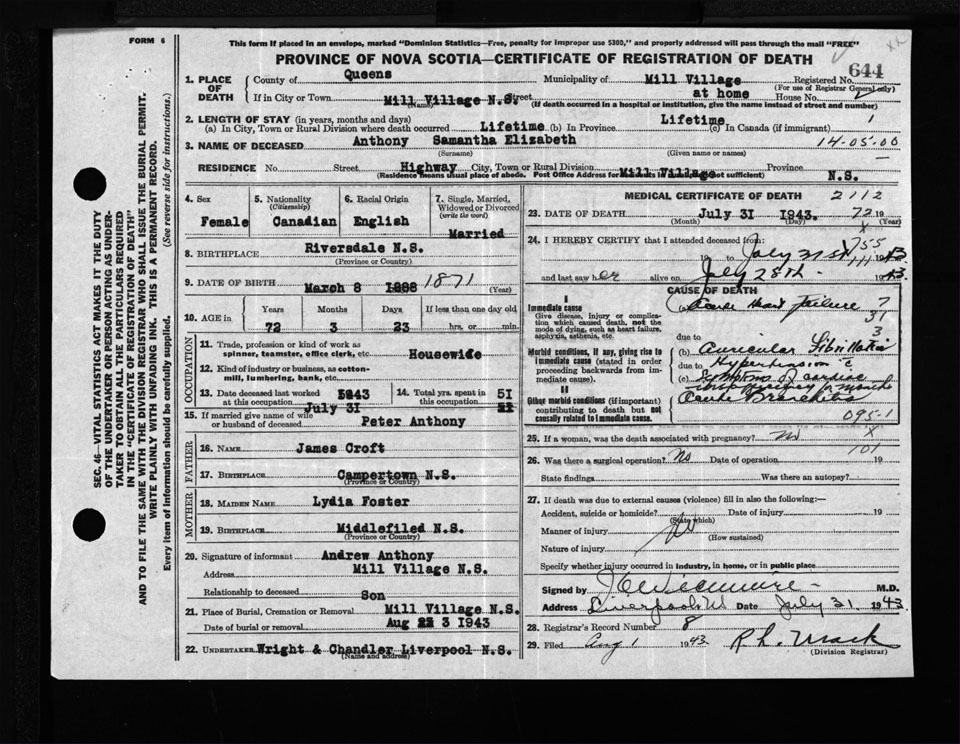 FORM 6
This form if placed in an envelope, marked "Dominion Statistics—Free, penalty for improper use $300," and properly addressed will pass through the mail "FREE"
PROVINCE OF NOVA SCOTIA—CERTIFICATE OF REGISTRATION OF DEATH
1. PLACE OF DEATH
County of Queens Municipality of Mill Village Registered No. 644
(For use of Registrar General only)
If in City or Town Mill Village N.S. Street at home House No.
(Name)
(If death occurred in a hospital or institution, give the name instead of street and number)
2. LENGTH OF STAY (in years, months and days)
(a) In City, Town or Rural Division where death occurred Lifetime (b) In Province Lifetime (c) In Canada (if immigrant) 1
3. NAME OF DECEASED Anthony Samantha Elizabeth 14-05-00
(Surname) (Given name or names)
RESIDENCE No. Street Highway City, Town or Rural Division Mill Village Province N.S.
(Residence means usual place of abode. Post Office Address for residents in not sufficient)
4. Sex Female
5. Nationality (Citizenship) Canadian
6. Racial Origin English
7. Single, Married, Widowed or Divorced (write the word) Married
8. BIRTHPLACE Riversdale N.S.
(Province or Country)
9. DATE OF BIRTH March 8 1888 1871
(Year)
10. AGE in Years Months Days If less than one day old
72 3 23 hrs. or min.
OCCUPATION
11. Trade, profession or kind of work as spinner, teamster, office clerk, etc. Housewife
12. Kind of industry or business, as cotton-mill, lumbering, bank, etc.
13. Date deceased last worked at this occupation July 31 1943
14. Total yrs. spent in this occupation 51
15. If married give name of wife or husband of deceased Peter Anthony
FATHER
16. NAME James Croft
17. BIRTHPLACE Campertown N.S.
(Province or Country)
MOTHER
18. MAIDEN NAME Lydia Foster
19. BIRTHPLACE Middlefiled N.S.
(Province or Country)
20. Signature of informant Andrew Anthony
Address Mill Village N.S.
Relationship to deceased Son
21. Place of Burial, Cremation or Removal Mill Village N.S.
Date of burial or removal Aug 3 1943
22. UNDERTAKER Wright & Chandler Liverpool N.S.
(Name and address)
MEDICAL CERTIFICATE OF DEATH 2112
23. DATE OF DEATH July 31 1943. 72 19
(Month) (Day) (Year)
X
24. I HEREBY CERTIFY that I attended deceased from:
19 to July 31st 1943.
755
111
and last saw her alive on July 28th - 1943.
CAUSE OF DEATH
I
Immediate cause
Give disease, injury or complication which caused death, not the mode of dying, such as heart failure, asphyxia, asthenia, etc.
(a) Acute Heart Failure 7
31
3
due to
Morbid conditions, if any, giving rise to immediate cause (stated in order proceeding backwards from immediate cause).
(b) Auricular Fibrillation
due to Hypertension c̄
(c) Symptoms of cardiac
II
Other morbid conditions (if important) contributing to death but not causally related to immediate cause.
Acute Bronchitis
095-1
25. If a woman, was the death associated with pregnancy? No X
101
26. Was there a surgical operation? No Date of operation 19
State findings Was there an autopsy?
27. If death was due to external causes (violence) fill in also the following:—
Accident, suicide or homicide? Date of injury 19
(State which)
Manner of injury No
(How sustained)
Nature of injury
Specify whether injury occurred in industry, in home, or in public place
Signed by M.D.
Address Liverpool Date July 31 1943.
28. Registrar's Record Number 8
29. Filed Aug 1 1943 R. L. Mack
(Division Registrar)
SEC. 46—VITAL STATISTICS ACT MAKES IT THE DUTY
OF THE UNDERTAKER OR PERSON ACTING AS UNDERTAKER TO OBTAIN ALL THE PARTICULARS REQUIRED
IN THE "CERTIFICATE OF REGISTRATION OF DEATH"
AND TO FILE THE SAME WITH THE DIVISION REGISTRAR WHO SHALL ISSUE THE BURIAL PERMIT.
WRITE PLAINLY WITH UNFADING INK. THIS IS A PERMANENT RECORD.
Every item of information should be carefully supplied. (See reverse side for instructions.)